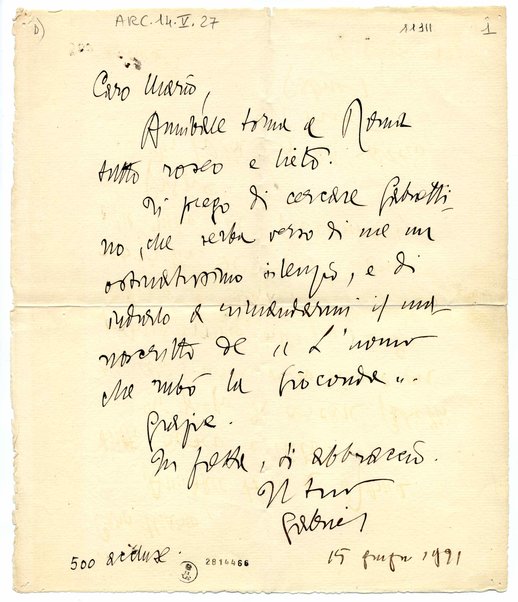 ARC. 14. V. 27
11311
1
Caro Mario,
Annibale torna a Roma
tutto roseo e lieto.
Ti prego di cercare Gabretti-
no, che serba verso di me un
ostinatissimo silenzio, e di
indurlo a rimandarmi il ma-
noscritto de "L'uomo
che rubò la Gioconda".
Grazie.
In fretta, ti abbraccio.
Il tuo
Gabriel
500 accluse.
2814466
15 giugno 1921